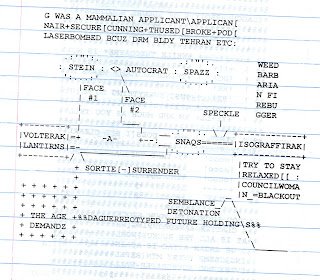 G WAS A MAMMALIAN APPLICANT\APPLICAN[
NAIR+SECURE[CUNNING+THUSED[BROKE+POD[
LASERBOMBED BCUZ DRM BLDY TEHRAN ETC:
: STEIN : <> AUTOCRAT : SPAZZ :
WEED
BARB
ARIA
N FI
REBU
GGER
|FACE
#1
|FACE
#2
SPECKLE
|VOLTERAK|=
|LANTIRNS|=
-A-
SNAQS=====|ISOGRAFFIRAK|
SORTIE[-]SURRENDER
|TRY TO STAY
|RELAXED[[ :
|COUNCILWOMA
|N_=BLACKOUT
SEMBLANCE_/
DETONATION
+ + + + + +
+ + + + + +
+ THE AGE +%%DAGUERREOTYPED FUTURE HOLDING\S%%
+ DEMANDZ +
+ + + + + +